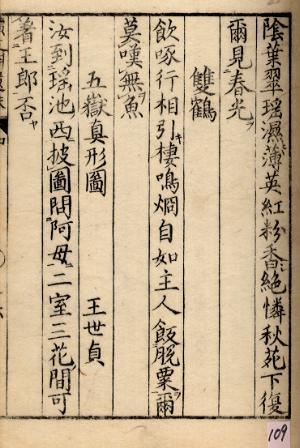 陰葉翠瑶濕薄英紅粉香絶憐秋苑下復
爾見春光
雙鶴
飲啄行相引棲鳴烟自如主人飯脱粟爾
莫嘆無魚
五嶽真形圖 王世貞
汝到瑶池西披圖問阿母二室三花間可
着王郎否
109